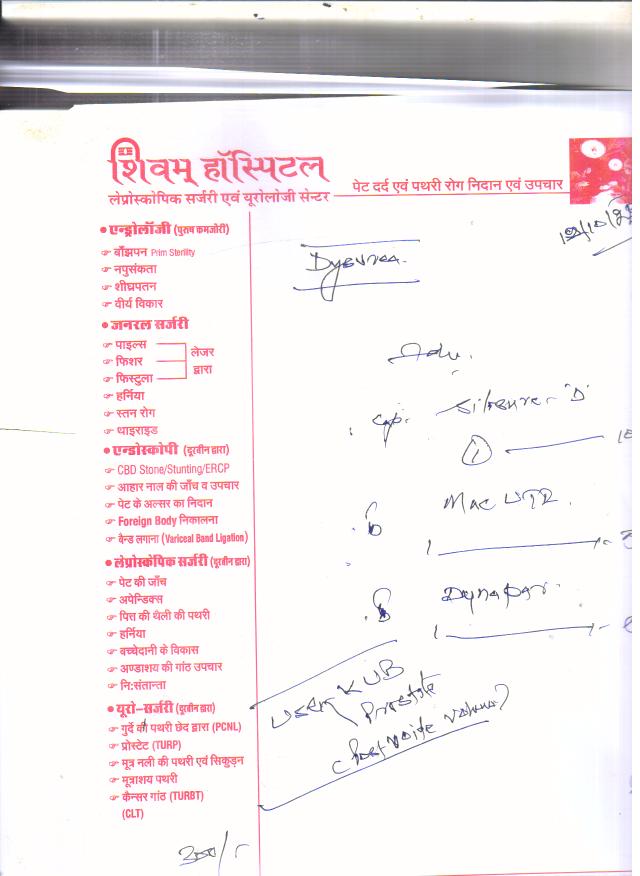 शिवम् हॉस्पिटल
लेप्रोस्कोपिक सर्जरी एवं यूरोलोजी सेन्टर
पेट दर्द एवं पथरी रोग निदान एवं उपचार
• एन्ड्रोलॉजी (पुरुष कमजोरी)
☞ बाँझपन Prim Sterility
☞ नपुसंकता
☞ शीघ्रपतन
☞ वीर्य विकार
• जनरल सर्जरी
☞ पाइल्स
☞ फिशर
☞ फिस्टुला
लेजर
द्वारा
☞ हर्निया
☞ स्तन रोग
☞ थाइराइड
• एन्डोस्कोपी (दूरबीन द्वारा)
☞ CBD Stone/Stunting/ERCP
☞ आहार नाल की जाँच व उपचार
☞ पेट के अल्सर का निदान
☞ Foreign Body निकालना
☞ बैन्ड लगाना (Variceal Band Ligation)
• लेप्रोस्कोपिक सर्जरी (दूरबीन द्वारा)
☞ पेट की जाँच
☞ अपेन्डिक्स
☞ पित्त की थैली की पथरी
☞ हर्निया
☞ बच्चेदानी के विकास
☞ अण्डाशय की गांठ उपचार
☞ नि:संतानता
• यूरो-सर्जरी (दूरबीन द्वारा)
☞ गुर्दे की पथरी छेद द्वारा (PCNL)
☞ प्रोस्टेट (TURP)
☞ मूत्र नली की पथरी एवं सिकुड़न
☞ मूत्राशय पथरी
☞ कैन्सर गांठ (TURBT)
(CLT)
Dysurea
Adv.
Cap. "D"
1
Mac UTR
1
Dynapar
1
KUB
Prostate
(Post voide volume)